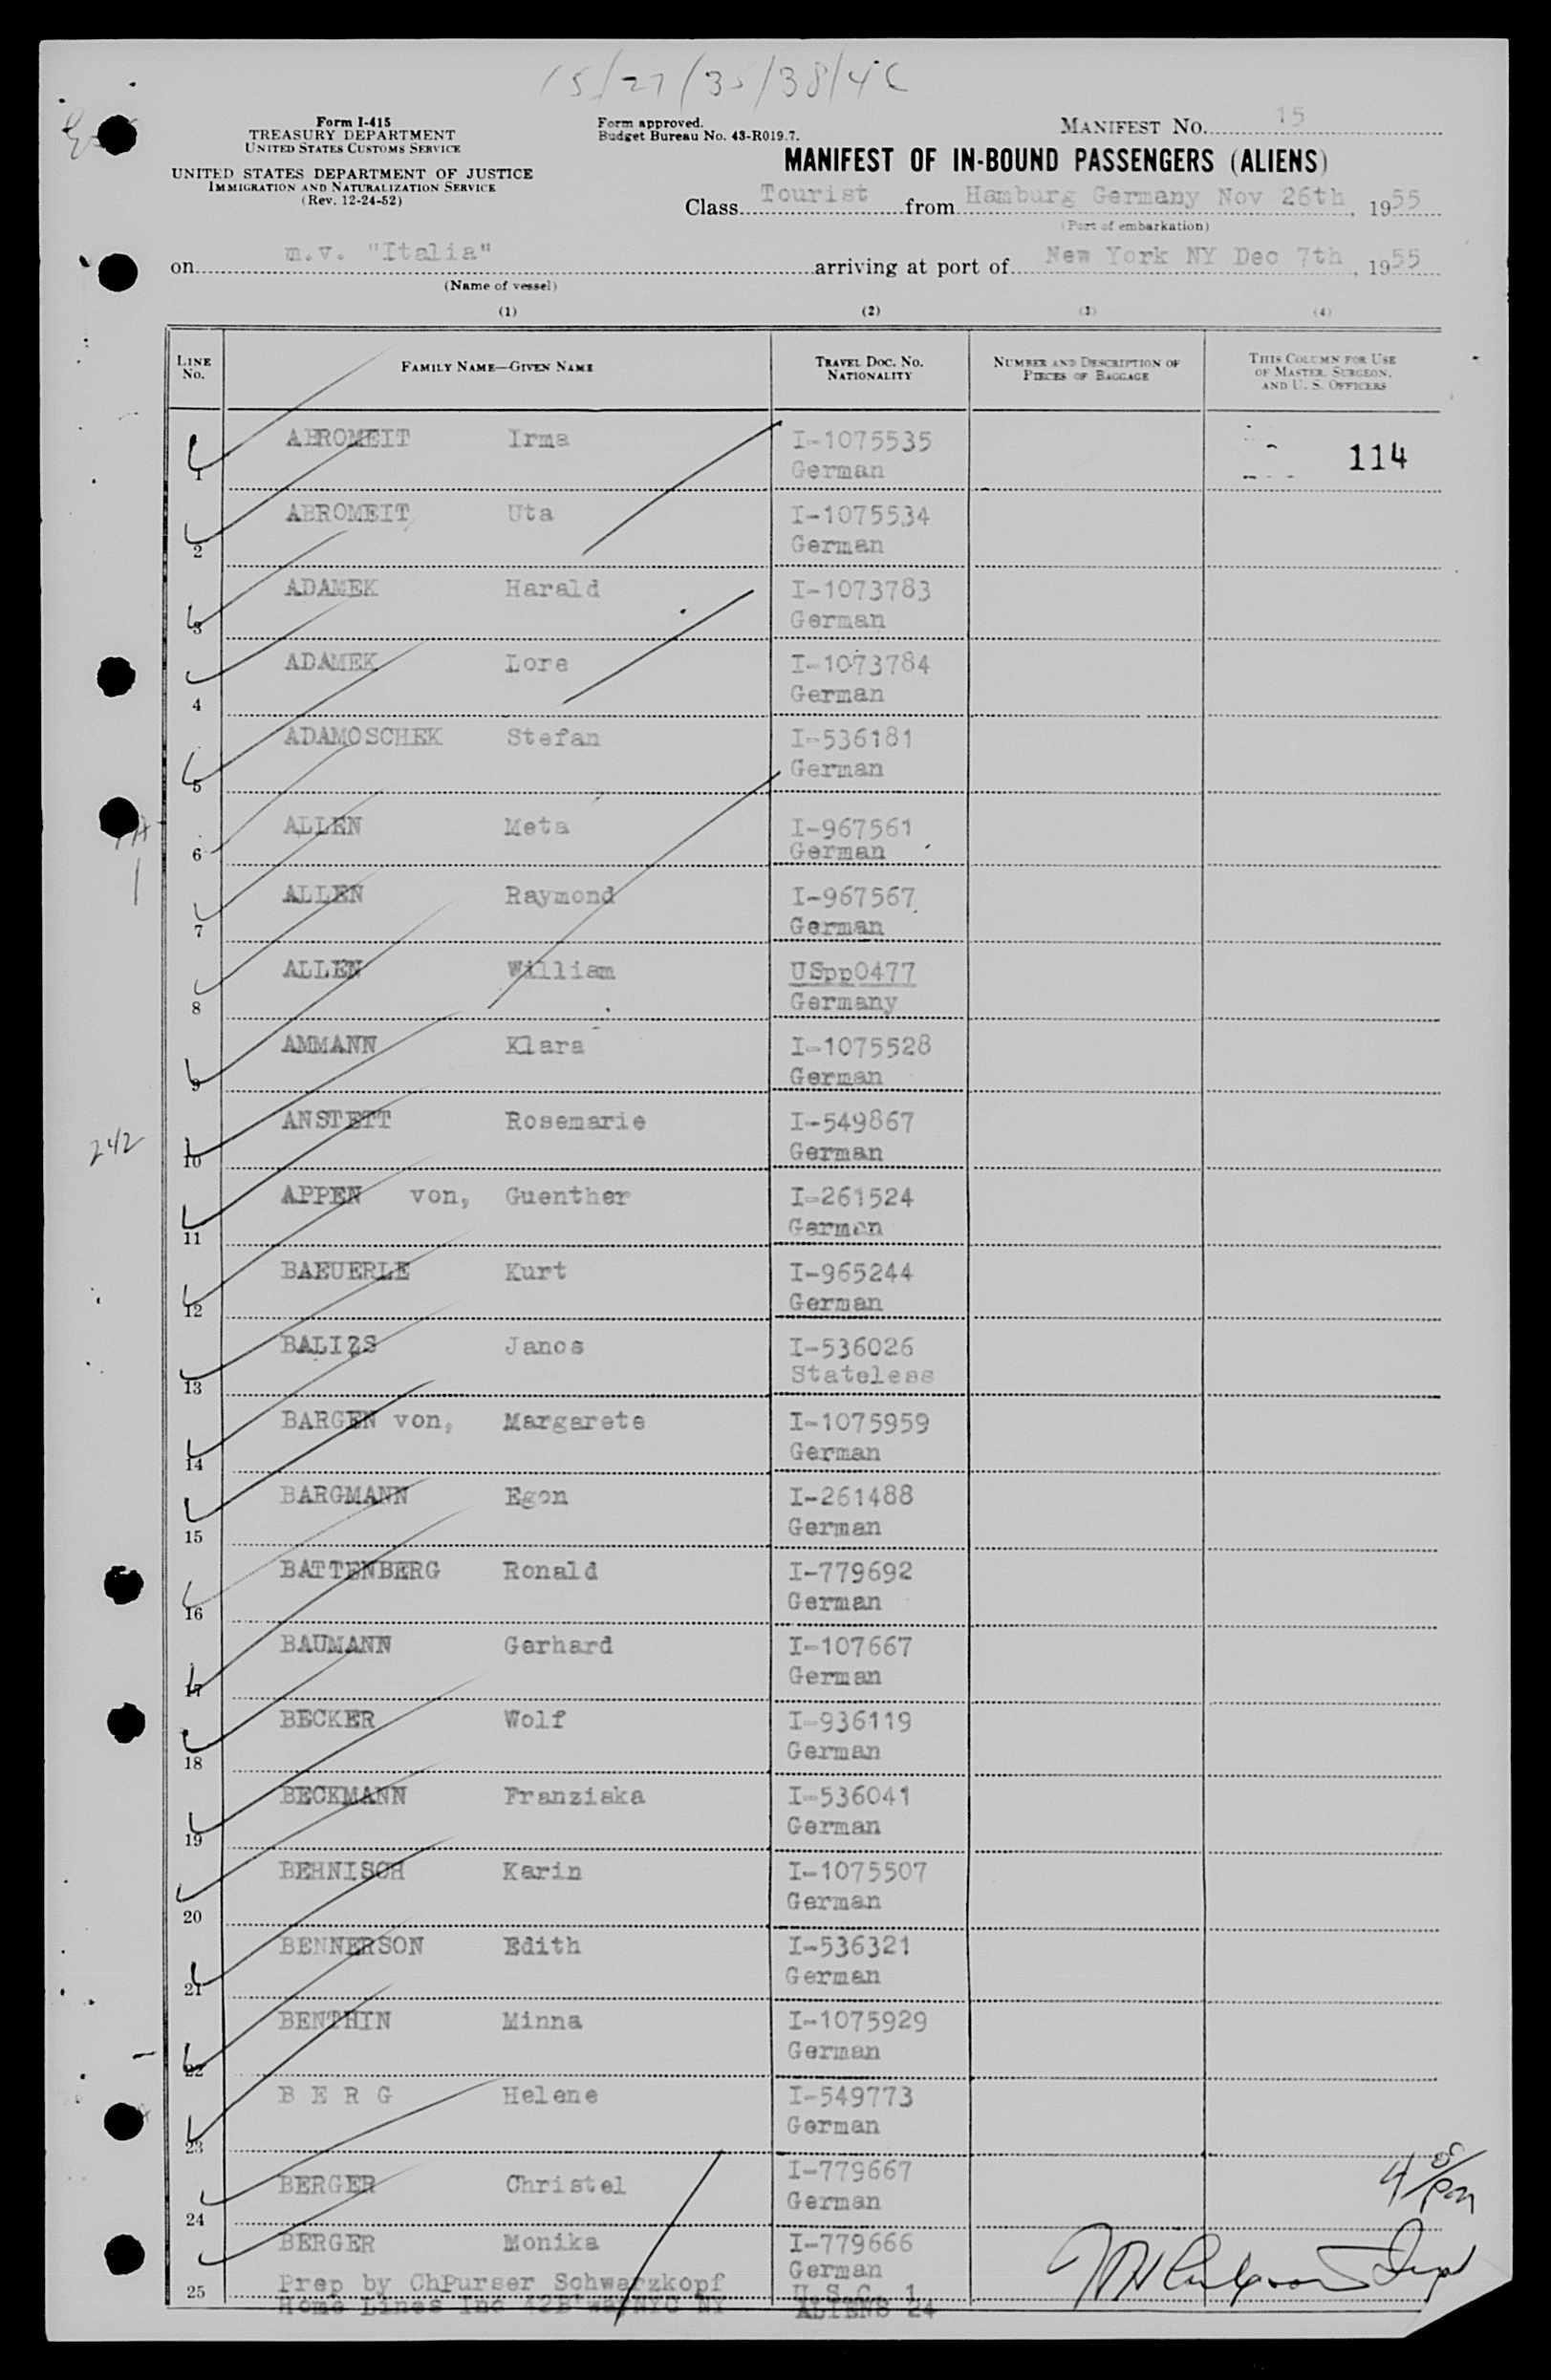 15/27/35/38/46
Form I-415
TREASURY DEPARTMENT
UNITED STATES CUSTOMS SERVICE
UNITED STATES DEPARTMENT OF JUSTICE
IMMIGRATION AND NATURALIZATION SERVICE
(Rev. 12-24-52)
Form approved.
Budget Bureau No. 43-R019.7.
MANIFEST NO. 15
MANIFEST OF IN-BOUND PASSENGERS (ALIENS)
Class Tourist from Hamburg Germany Nov 26th, 1955
(Port of embarkation)
on m.v. "Italia" arriving at port of New York NY Dec 7th, 1955
(Name of vessel)
(1) (2) (3) (4)
LINE NO. FAMILY NAME—GIVEN NAME TRAVEL DOC. NO. NATIONALITY NUMBER AND DESCRIPTION OF PIECES OF BAGGAGE THIS COLUMN FOR USE OF MASTER, SURGEON, AND U. S. OFFICERS
1 ABROMEIT Irma I-1075535 114
German
2 ABROMEIT Uta I-1075534
German
3 ADAMEK Harald I-1073783
German
4 ADAMEK Lore I-1073784
German
5 ADAMOSCHEK Stefan I-536181
German
6 ALLEN Meta I-967561
German
7 ALLEN Raymond I-967567
German
8 ALLEN William USpp0477
Germany
9 AMMANN Klara I-1075528
German
242
10 ANSTETT Rosemarie I-549867
German
11 APPEN von, Guenther I-261524
German
12 BAEUERLE Kurt I-965244
German
13 BALIZS Janos I-536026
Stateless
14 BARGEN von, Margarete I-1075959
German
15 BARGMANN Egon I-261488
German
16 BATTENBERG Ronald I-779692
German
17 BAUMANN Gerhard I-107667
German
18 BECKER Wolf I-936119
German
19 BECKMANN Franziska I-536041
German
20 BEHNISCH Karin I-1075507
German
21 BENNERSON Edith I-536321
German
22 BENTHIN Minna I-1075929
German
23 B E R G Helene I-549773
German
24 BERGER Christel I-779667
German
25 BERGER Monika I-779666
German
Prep by ChPurser Schwarzkopf U.S.C. 1
Home Lines Inc 42B'way NYC NY ALIENS 24